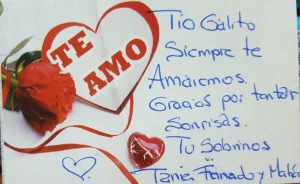 TE
AMO
Tio Galito
Siempre te
Amaremos.
Gracias por tantas
Sonrisas.
Tu Sobrinos
Tania Fernando y